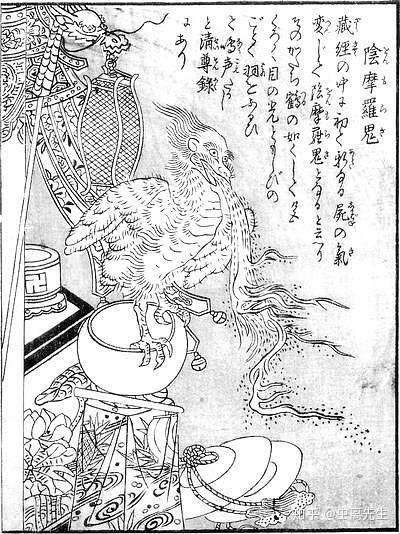 陰摩羅鬼
藏經の中に初て新なる屍の氣
変じて陰摩羅鬼となると云へり
そのかたち鶴の如くして色
くろく目の光ともしびの
ごとく羽をふるひ
て鳴声たかし
と清尊録
にあり
知乎